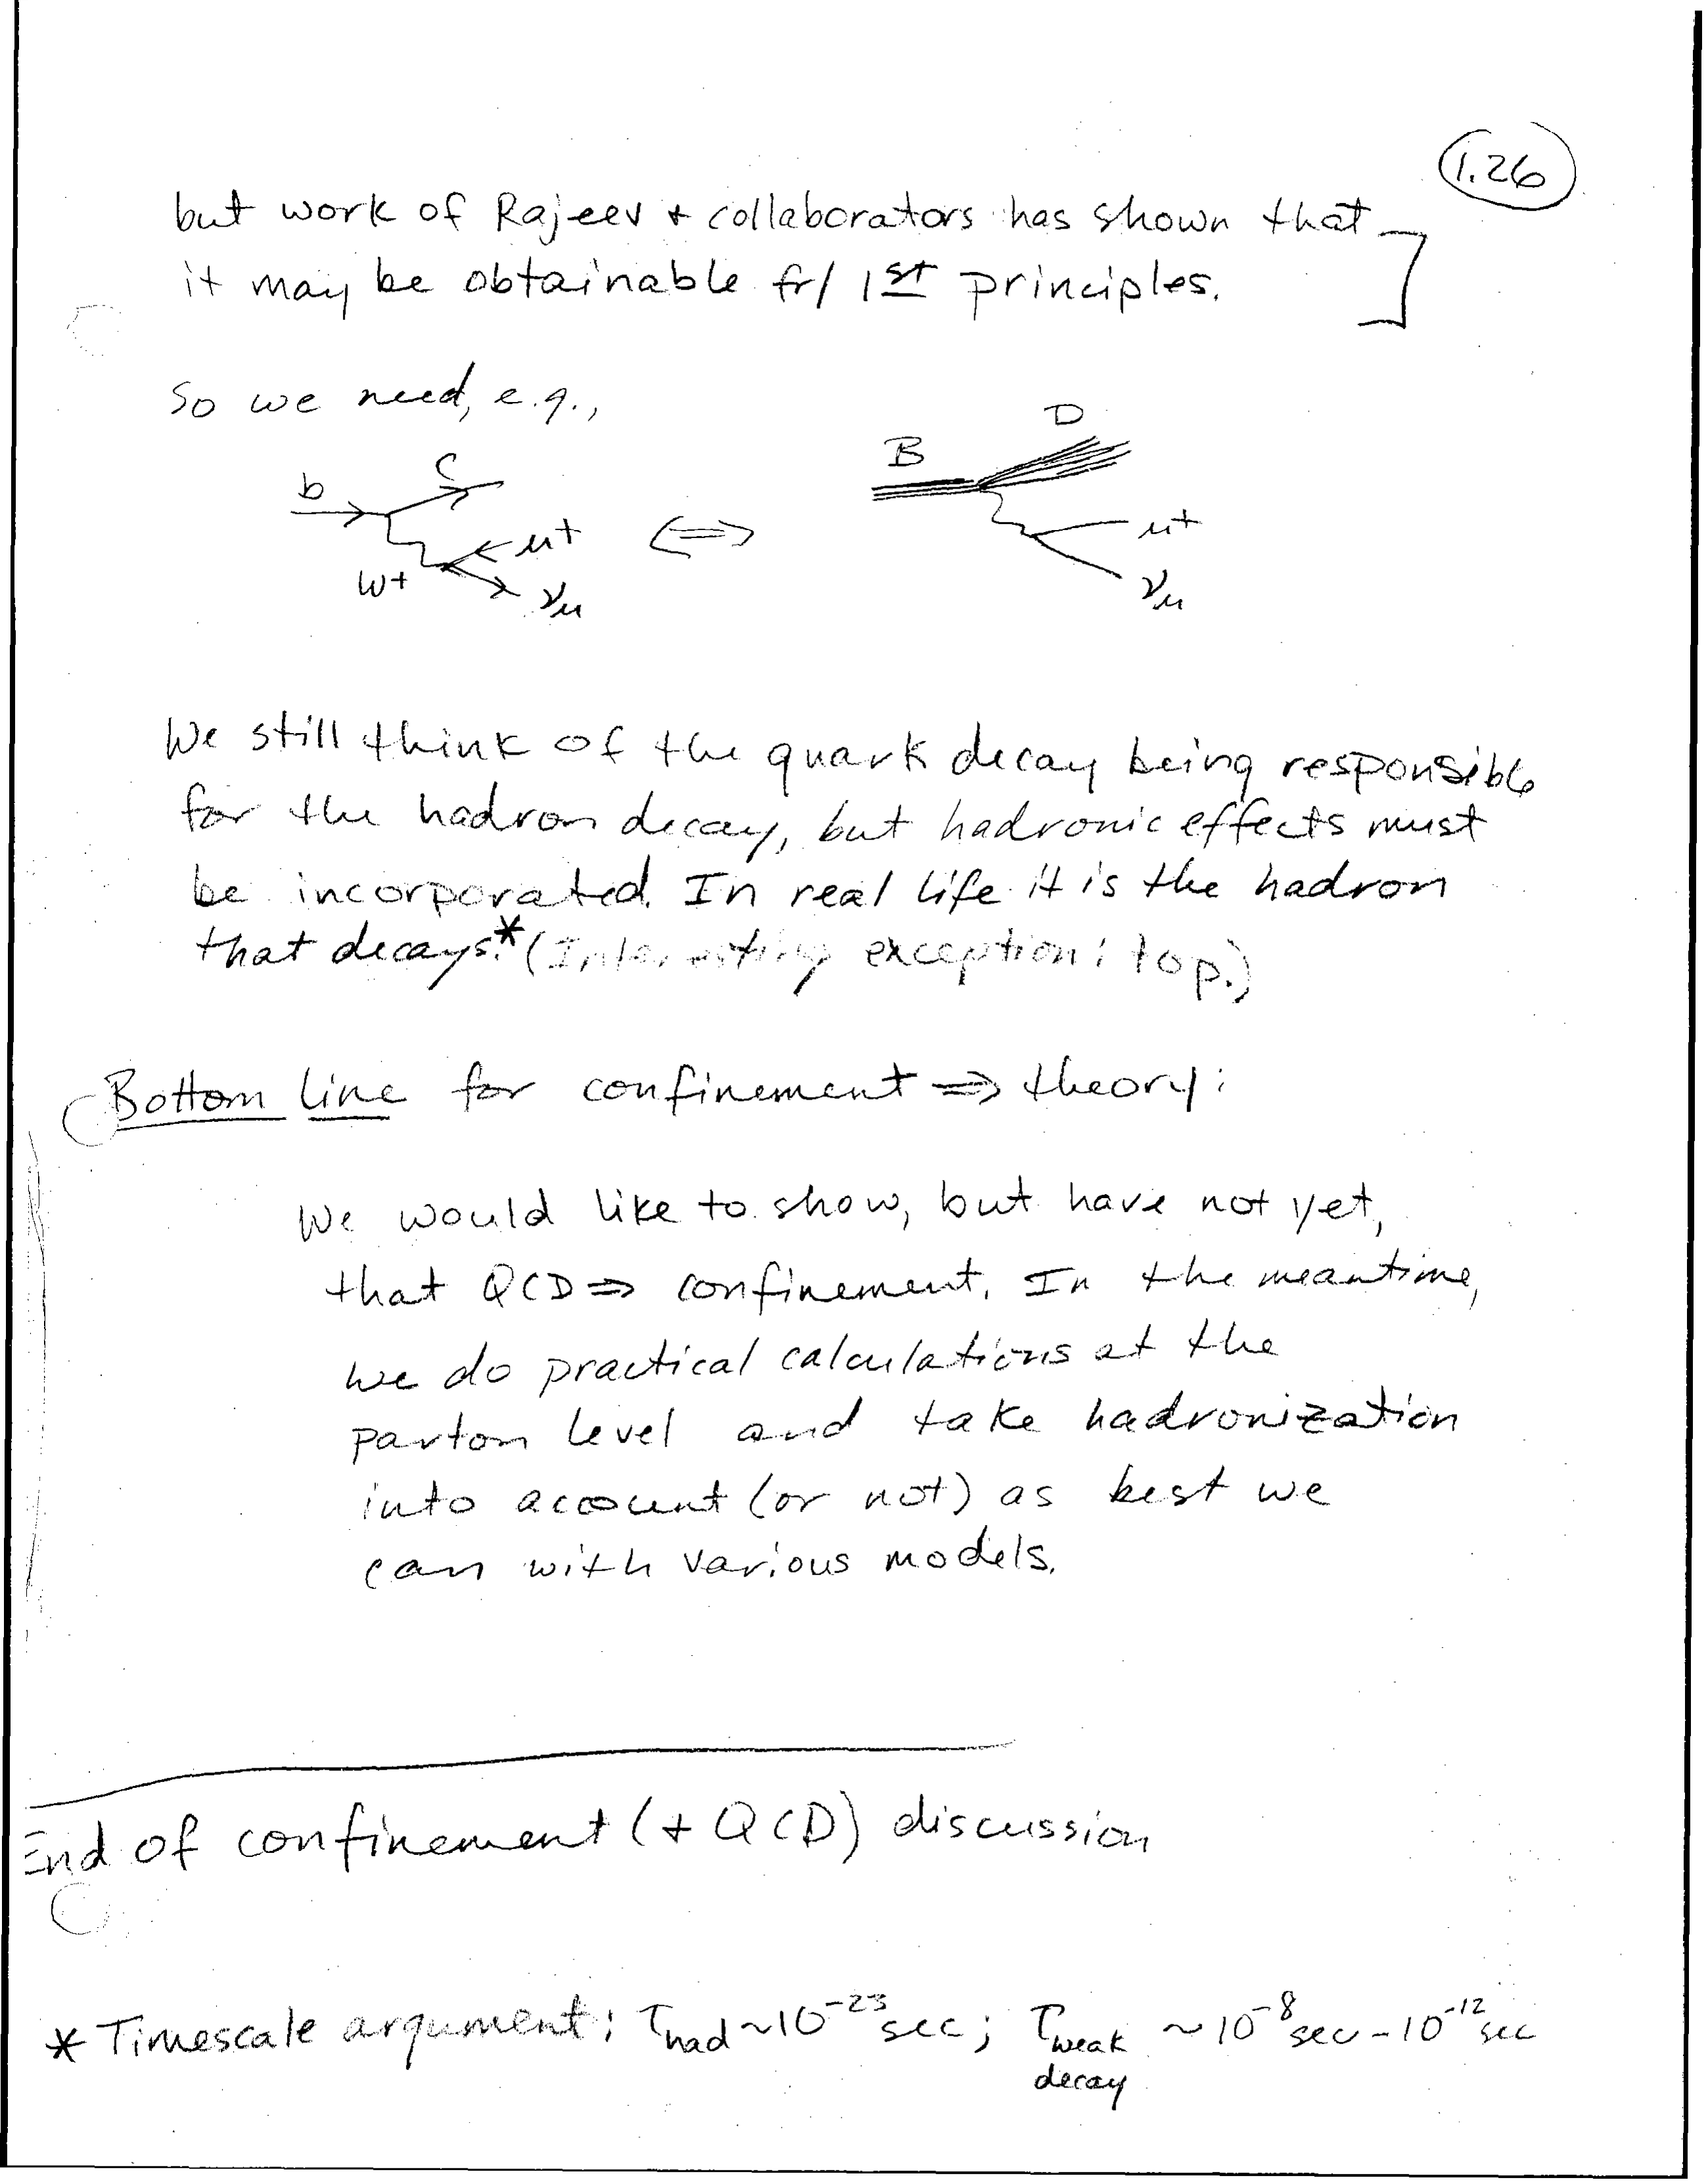 1.26
but work of Rajeev + collaborators has shown that
it may be obtainable fr/ 1st principles.
So we need, e.g.,
D
B
b
c
μ+
W+
νμ
⇔
μ+
νμ
We still think of the quark decay being responsible
for the hadron decay, but hadronic effects must
be incorporated. In real life it is the hadron
that decays.* (Interesting exception: top.)
Bottom line for confinement ⇒ theory:
We would like to show, but have not yet,
that QCD ⇒ confinement. In the meantime,
we do practical calculations at the
parton level and take hadronization
into account (or not) as best we
can with various models.
End of confinement (+ QCD) discussion
* Timescale argument: τhad ~10⁻²³ sec; τweak decay ~10⁻⁸ sec - 10⁻¹² sec